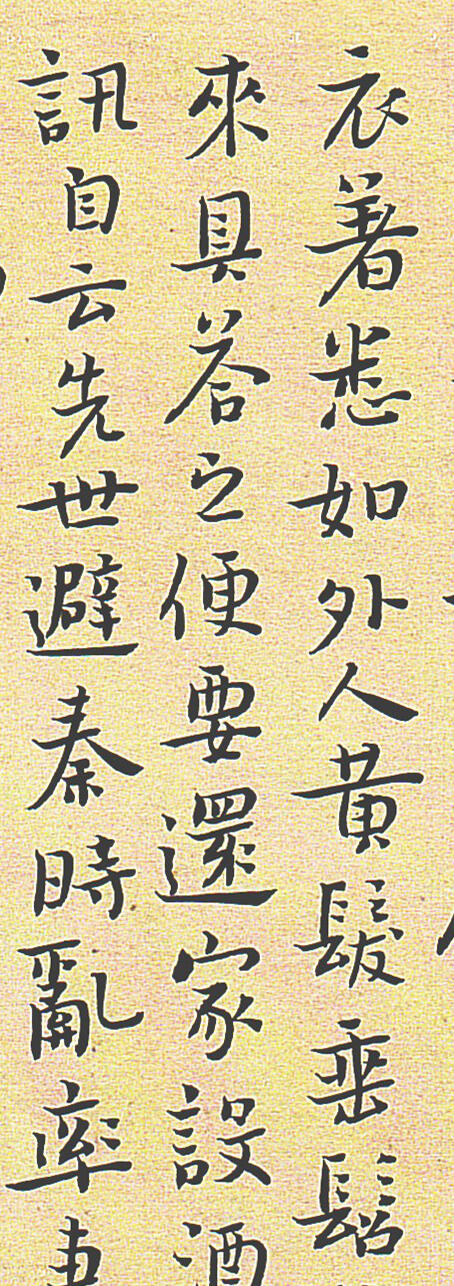 衣著悉如外人黃髮垂髫
來具荅之便要還家設酒
訊自云先世避秦時亂率妻